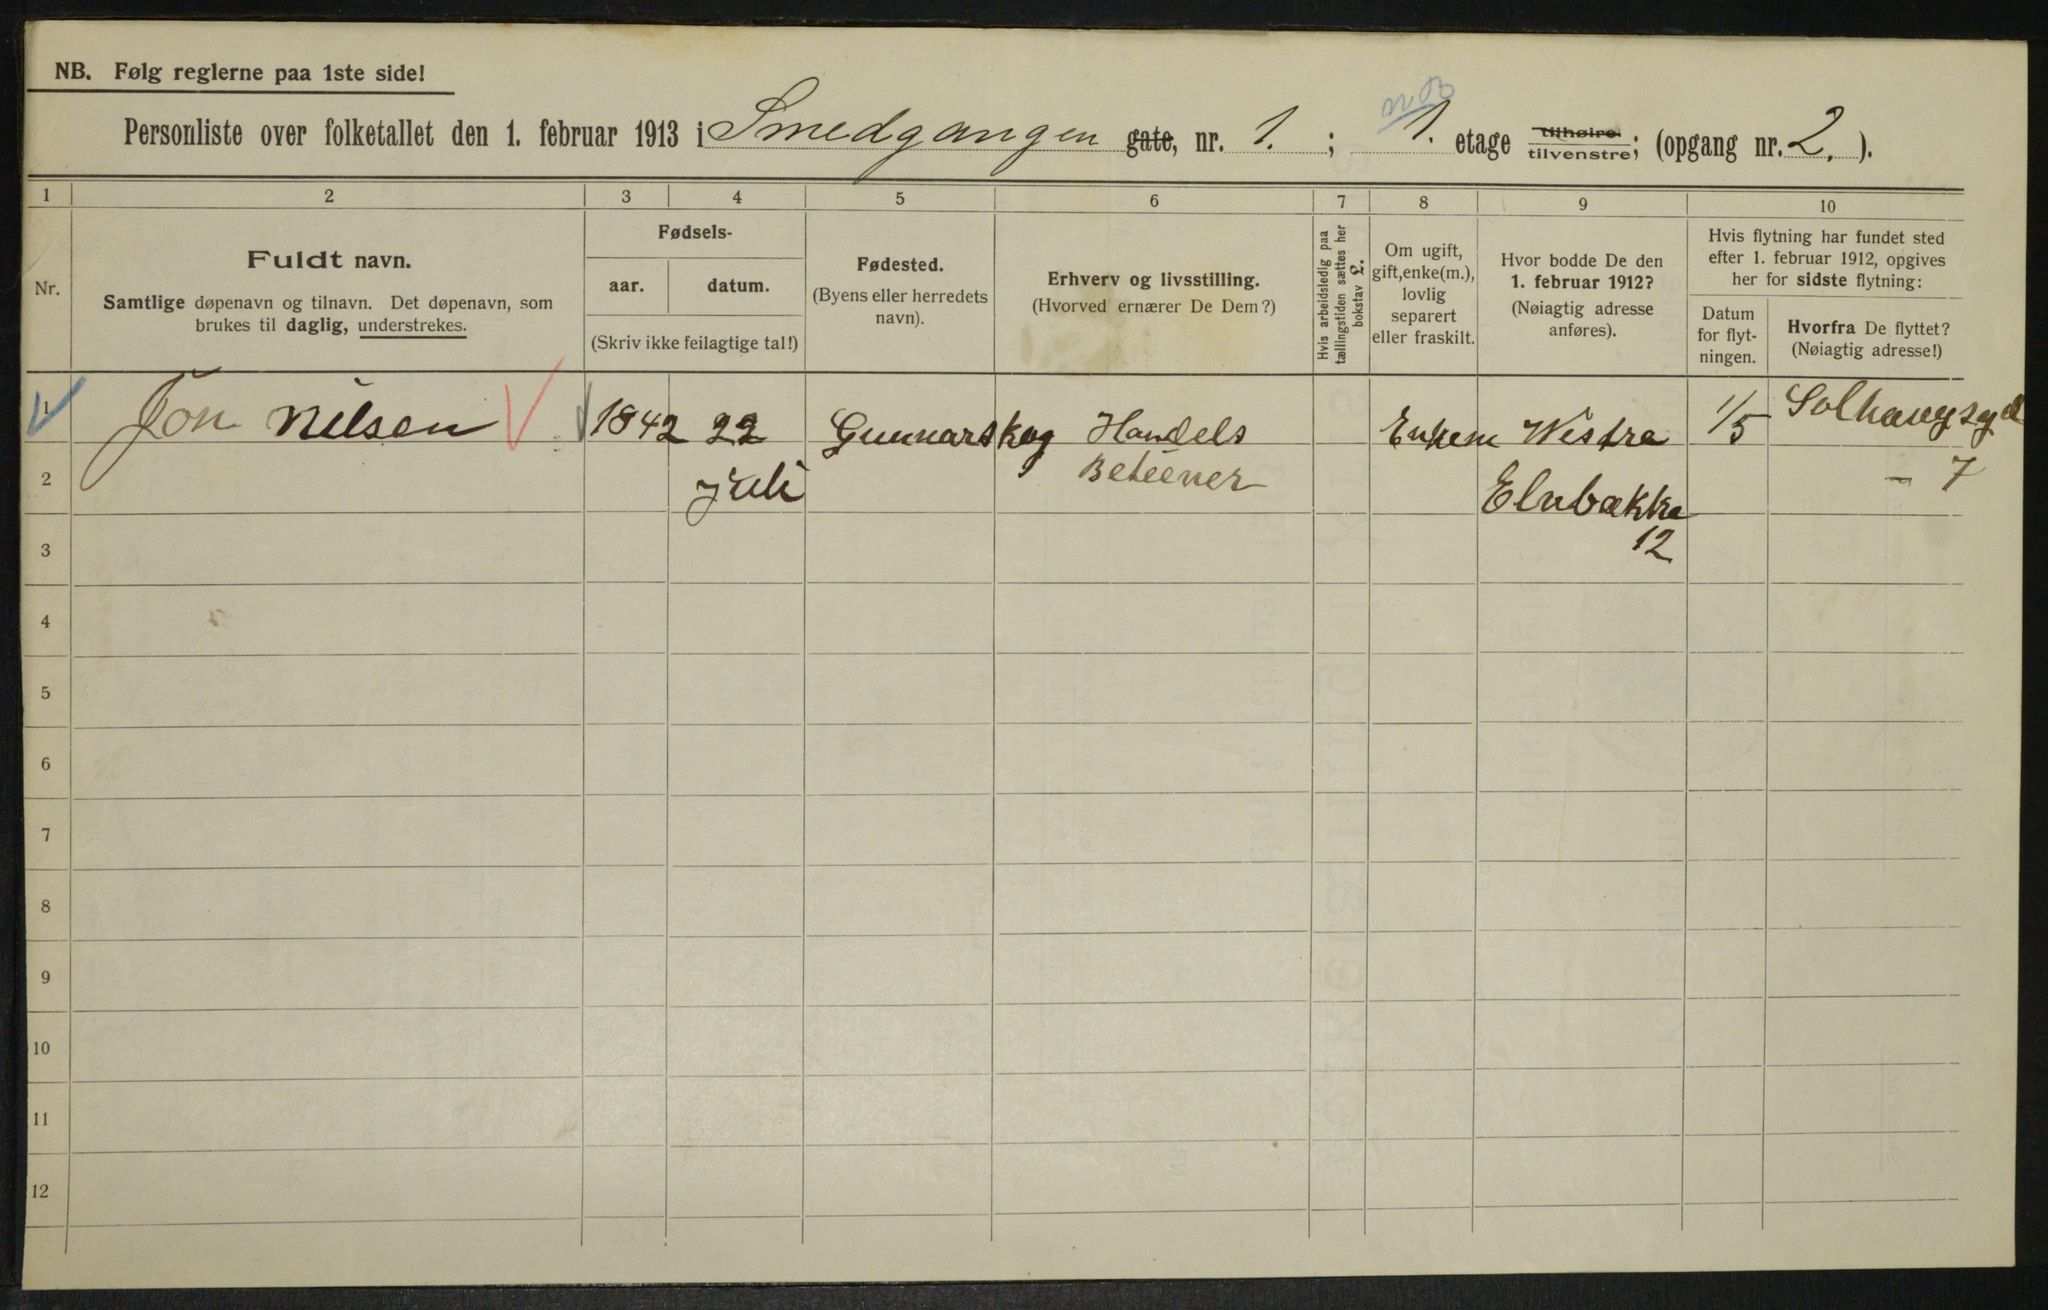 NB. Følg reglerne paa 1ste side!
Personliste over folketallet den 1. februar 1913 i Smedgangen gate, nr. 1. ; 1. etage tilhøire tilvenstre; (opgang nr. 2. ).
1 2 3 4 5 6 7 8 9 10
Nr.
Fuldt navn.
Samtlige døpenavn og tilnavn. Det døpenavn, som
brukes til daglig, understrekes.
Fødsels-
aar. datum.
(Skriv ikke feilagtige tal!)
Fødested.
(Byens eller herredets
navn).
Erhverv og livsstilling.
(Hvorved ernærer De Dem?)
Hvis arbeidsledig paa
tællingstiden sættes her
bokstav L.
Om ugift,
gift, enke(m.),
lovlig
separert
eller fraskilt.
Hvor bodde De den
1. februar 1912?
(Nøiagtig adresse
anføres).
Hvis flytning har fundet sted
efter 1. februar 1912, opgives
her for sidste flytning:
Datum
for flyt-
ningen.
Hvorfra De flyttet?
(Nøiagtig adresse!)
1 Jon Nilsen 1842 22 Gunnarskog Handels Enkem Westre 1/5 Solhaugsgd
2 juli Beteener Elvbakke - 7
3 12
4
5
6
7
8
9
10
11
12